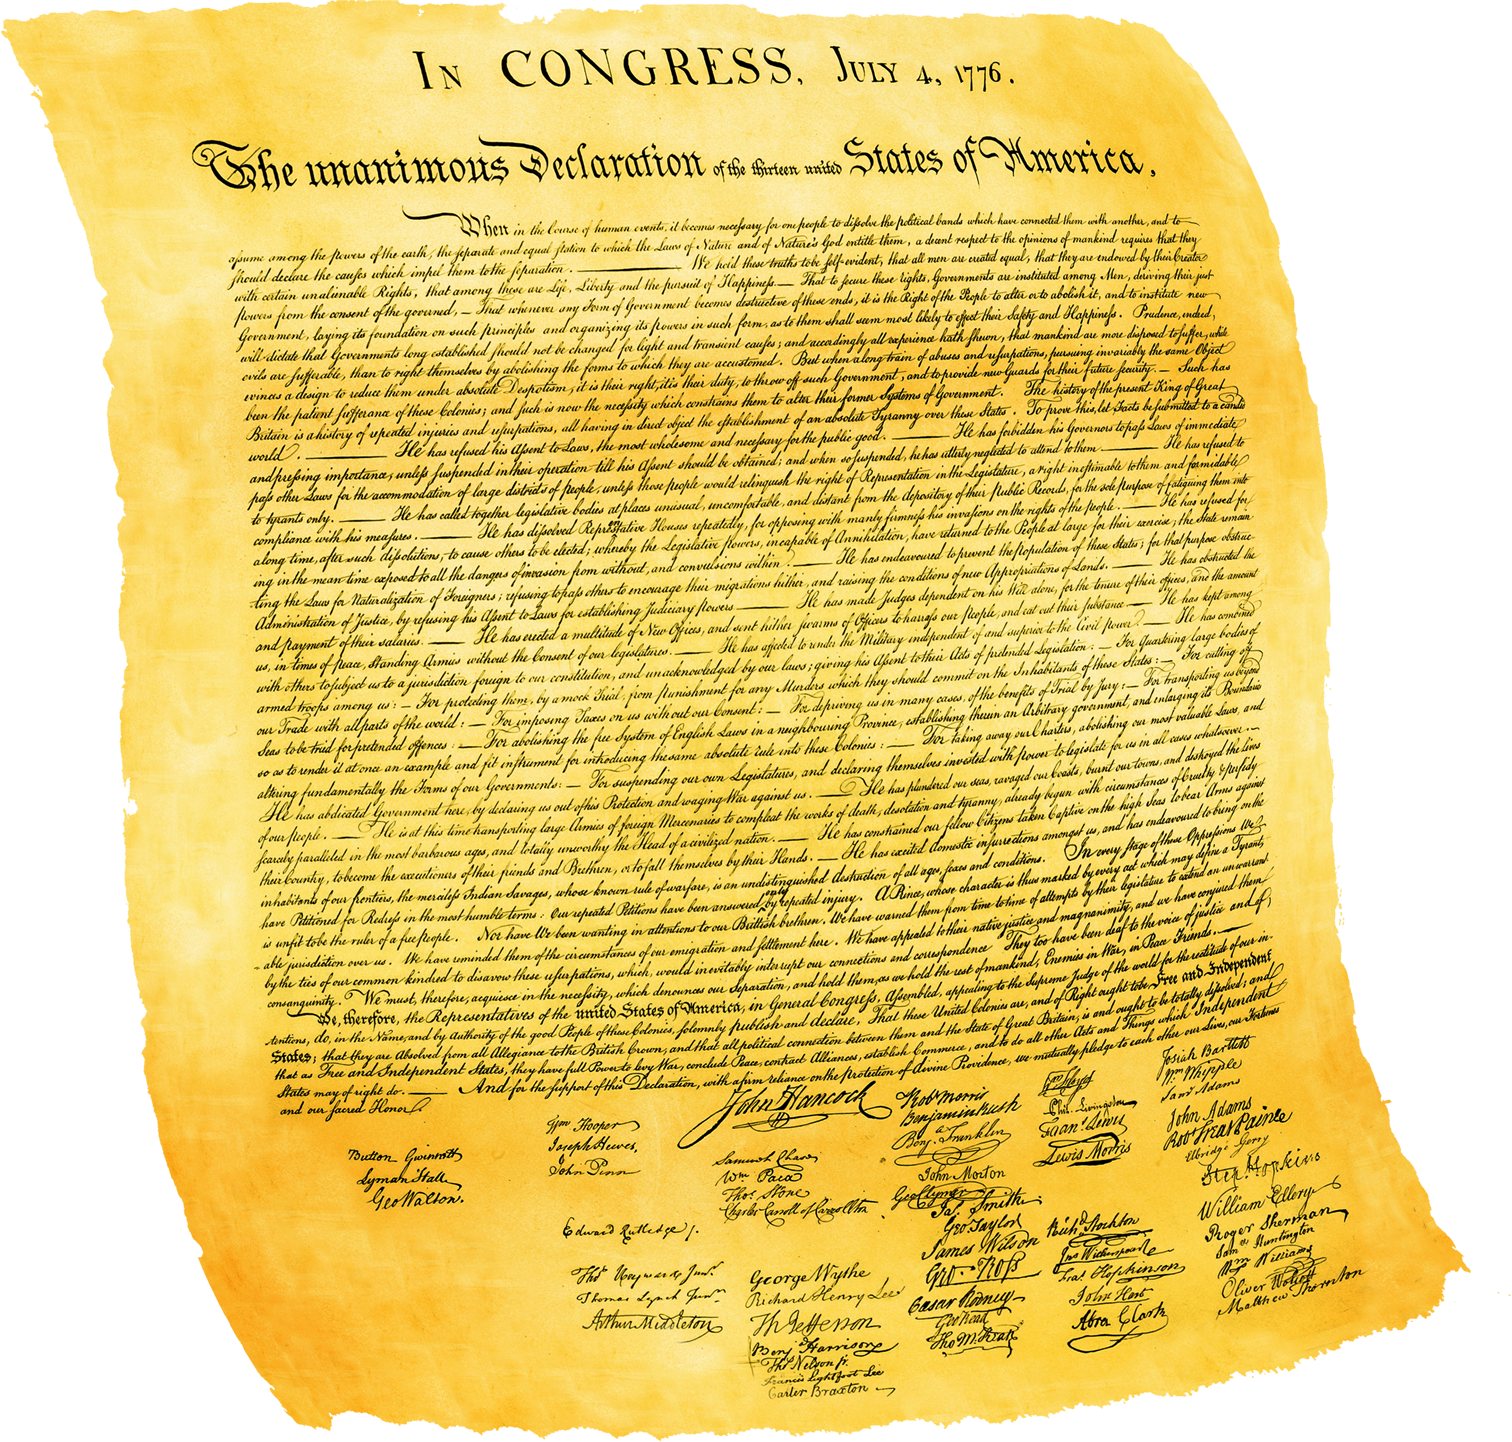 IN CONGRESS, JULY 4, 1776.
The unanimous Declaration of the thirteen united States of America,
When in the Course of human events, it becomes necessary for one people to dissolve the political bands which have connected them with another, and to
assume among the powers of the earth, the separate and equal station to which the Laws of Nature and of Nature's God entitle them, a decent respect to the opinions of mankind requires that they
should declare the causes which impel them to the separation. — We hold these truths to be self-evident, that all men are created equal, that they are endowed by their Creator
with certain unalienable Rights, that among these are Life, Liberty and the pursuit of Happiness. — That to secure these rights, Governments are instituted among Men, deriving their just
powers from the consent of the governed, — That whenever any Form of Government becomes destructive of these ends, it is the Right of the People to alter or to abolish it, and to institute new
Government, laying its foundation on such principles and organizing its powers in such form, as to them shall seem most likely to effect their Safety and Happiness. Prudence, indeed,
will dictate that Governments long established should not be changed for light and transient causes; and accordingly all experience hath shewn, that mankind are more disposed to suffer, while
evils are sufferable, than to right themselves by abolishing the forms to which they are accustomed. But when a long train of abuses and usurpations, pursuing invariably the same Object
evinces a design to reduce them under absolute Despotism, it is their right, it is their duty, to throw off such Government, and to provide new Guards for their future security. — Such has
been the patient sufferance of these Colonies; and such is now the necessity which constrains them to alter their former Systems of Government. The history of the present King of Great
Britain is a history of repeated injuries and usurpations, all having in direct object the establishment of an absolute Tyranny over these States. To prove this, let Facts be submitted to a candid
world. — He has refused his Assent to Laws, the most wholesome and necessary for the public good. — He has forbidden his Governors to pass Laws of immediate
and pressing importance, unless suspended in their operation till his Assent should be obtained; and when so suspended, he has utterly neglected to attend to them. — He has refused to
pass other Laws for the accommodation of large districts of people, unless those people would relinquish the right of Representation in the Legislature, a right inestimable to them and formidable
to tyrants only. — He has called together legislative bodies at places unusual, uncomfortable, and distant from the depository of their Public Records, for the sole purpose of fatiguing them into
compliance with his measures. — He has dissolved Representative Houses repeatedly, for opposing with manly firmness his invasions on the rights of the people. — He has refused for
a long time, after such dissolutions, to cause others to be elected; whereby the Legislative powers, incapable of Annihilation, have returned to the People at large for their exercise; the State remain
ing in the mean time exposed to all the dangers of invasion from without, and convulsions within. — He has endeavoured to prevent the population of these States; for that purpose obstruc-
ting the Laws for Naturalization of Foreigners; refusing to pass others to encourage their migrations hither, and raising the conditions of new Appropriations of Lands. — He has obstructed the
Administration of Justice, by refusing his Assent to Laws for establishing Judiciary powers — He has made Judges dependent on his Will alone, for the tenure of their offices, and the amount
and payment of their salaries. — He has erected a multitude of New Offices, and sent hither swarms of Officers to harrass our people, and eat out their substance — He has kept among
us, in times of peace, Standing Armies without the Consent of our legislatures. — He has affected to render the Military independent of and superior to the Civil power. — He has combined
with others to subject us to a jurisdiction foreign to our constitution, and unacknowledged by our laws; giving his Assent to their Acts of pretended Legislation: — For Quartering large bodies of
armed troops among us: — For protecting them, by a mock Trial, from punishment for any Murders which they should commit on the Inhabitants of these States: — For cutting off
our Trade with all parts of the world: — For imposing Taxes on us without our Consent: — For depriving us in many cases, of the benefits of Trial by Jury: — For transporting us beyond
Seas to be tried for pretended offences: — For abolishing the free System of English Laws in a neighbouring Province, establishing therein an Arbitrary government, and enlarging its Boundaries
so as to render it at once an example and fit instrument for introducing the same absolute rule into these Colonies: — For taking away our Charters, abolishing our most valuable Laws, and
altering fundamentally the Forms of our Governments: — For suspending our own Legislatures, and declaring themselves invested with power to legislate for us in all cases whatsoever. —
He has abdicated Government here, by declaring us out of his Protection and waging War against us. — He has plundered our seas, ravaged our Coasts, burnt our towns, and destroyed the lives
of our people. — He is at this time transporting large Armies of foreign Mercenaries to compleat the works of death, desolation and tyranny, already begun with circumstances of Cruelty & perfidy
scarcely paralleled in the most barbarous ages, and totally unworthy the Head of a civilized nation. — He has constrained our fellow Citizens taken Captive on the high Seas to bear Arms against
their Country, to become the executioners of their friends and Brethren, or to fall themselves by their Hands. — He has excited domestic insurrections amongst us, and has endeavoured to bring on the
inhabitants of our frontiers, the merciless Indian Savages, whose known rule of warfare, is an undistinguished destruction of all ages, sexes and conditions. In every stage of these Oppressions We
have Petitioned for Redress in the most humble terms: Our repeated Petitions have been answered only by repeated injury. A Prince, whose character is thus marked by every act which may define a Tyrant,
is unfit to be the ruler of a free people. Nor have We been wanting in attentions to our Brittish brethren. We have warned them from time to time of attempts by their legislature to extend an unwarrant
able jurisdiction over us. We have reminded them of the circumstances of our emigration and settlement here. We have appealed to their native justice and magnanimity, and we have conjured them
by the ties of our common kindred to disavow these usurpations, which, would inevitably interrupt our connections and correspondence They too have been deaf to the voice of justice and of
consanguinity. We must, therefore, acquiesce in the necessity, which denounces our Separation, and hold them, as we hold the rest of mankind, Enemies in War, in Peace Friends. —
We, therefore, the Representatives of the united States of America, in General Congress, Assembled, appealing to the Supreme Judge of the world for the rectitude of our in-
tentions, do, in the Name, and by Authority of the good People of these Colonies, solemnly publish and declare, That these United Colonies are, and of Right ought to be Free and Independent
States; that they are Absolved from all Allegiance to the British Crown, and that all political connection between them and the State of Great Britain, is and ought to be totally dissolved; and
that as Free and Independent States, they have full Power to levy War, conclude Peace, contract Alliances, establish Commerce, and to do all other Acts and Things which Independent
States may of right do. — And for the support of this Declaration, with a firm reliance on the protection of divine Providence, we mutually pledge to each other our Lives, our Fortunes
and our sacred Honor.
Button Gwinnett
Lyman Hall
Geo Walton.
Wm Hooper
Joseph Hewes,
John Penn
Edward Rutledge /.
Thos Heyward Junr.
Thomas Lynch Junr.
Arthur Middleton
John Hancock
Samuel Chase
Wm Paca
Thos. Stone
Charles Carroll of Carrollton
George Wythe
Richard Henry Lee
Th Jefferson
Benj Harrison
Thos Nelson jr.
Francis Lightfoot Lee
Carter Braxton
Robt Morris
Benjamin Rush
Benj. Franklin
John Morton
Geo Clymer
Jas. Smith
Geo. Taylor
James Wilson
Geo. Ross
Caesar Rodney
Geo Read
Tho M:Kean
Wm Floyd
Phil. Livingston
Frans. Lewis
Lewis Morris
Richd. Stockton
Jno Witherspoon
Fras. Hopkinson
John Hart
Abra Clark
Josiah Bartlett
Wm Whipple
Saml Adams
John Adams
Robt Treat Paine
Elbridge Gerry
Step. Hopkins
William Ellery
Roger Sherman
Saml Huntington
Wm Williams
Oliver Wolcott
Matthew Thornton